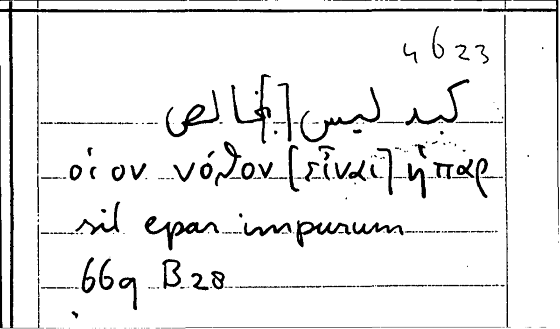 4623
كبد ليس [بخالص]
οἷον νόθον [εἶναι] ἧπαρ
sil epar impurum
669 B 28